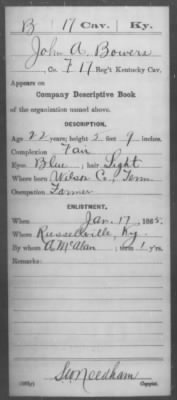 B 17 Cav. Ky.
John A. Bowers
, Co. F 17 Reg't Kentucky Cav.
Appears on
Company Descriptive Book
of the organization named above.
DESCRIPTION.
Age 22 years; height 5 feet 9 inches.
Complexion Fair
Eyes Blue; hair Light
Where born Wilson Co., Tenn
Occupation Farmer
ENLISTMENT.
When Jan. 17, 1865.
Where Russellville, Ky.
By whom A McAlan; term 1 y'rs.
Remarks:
Needham
Copyist.